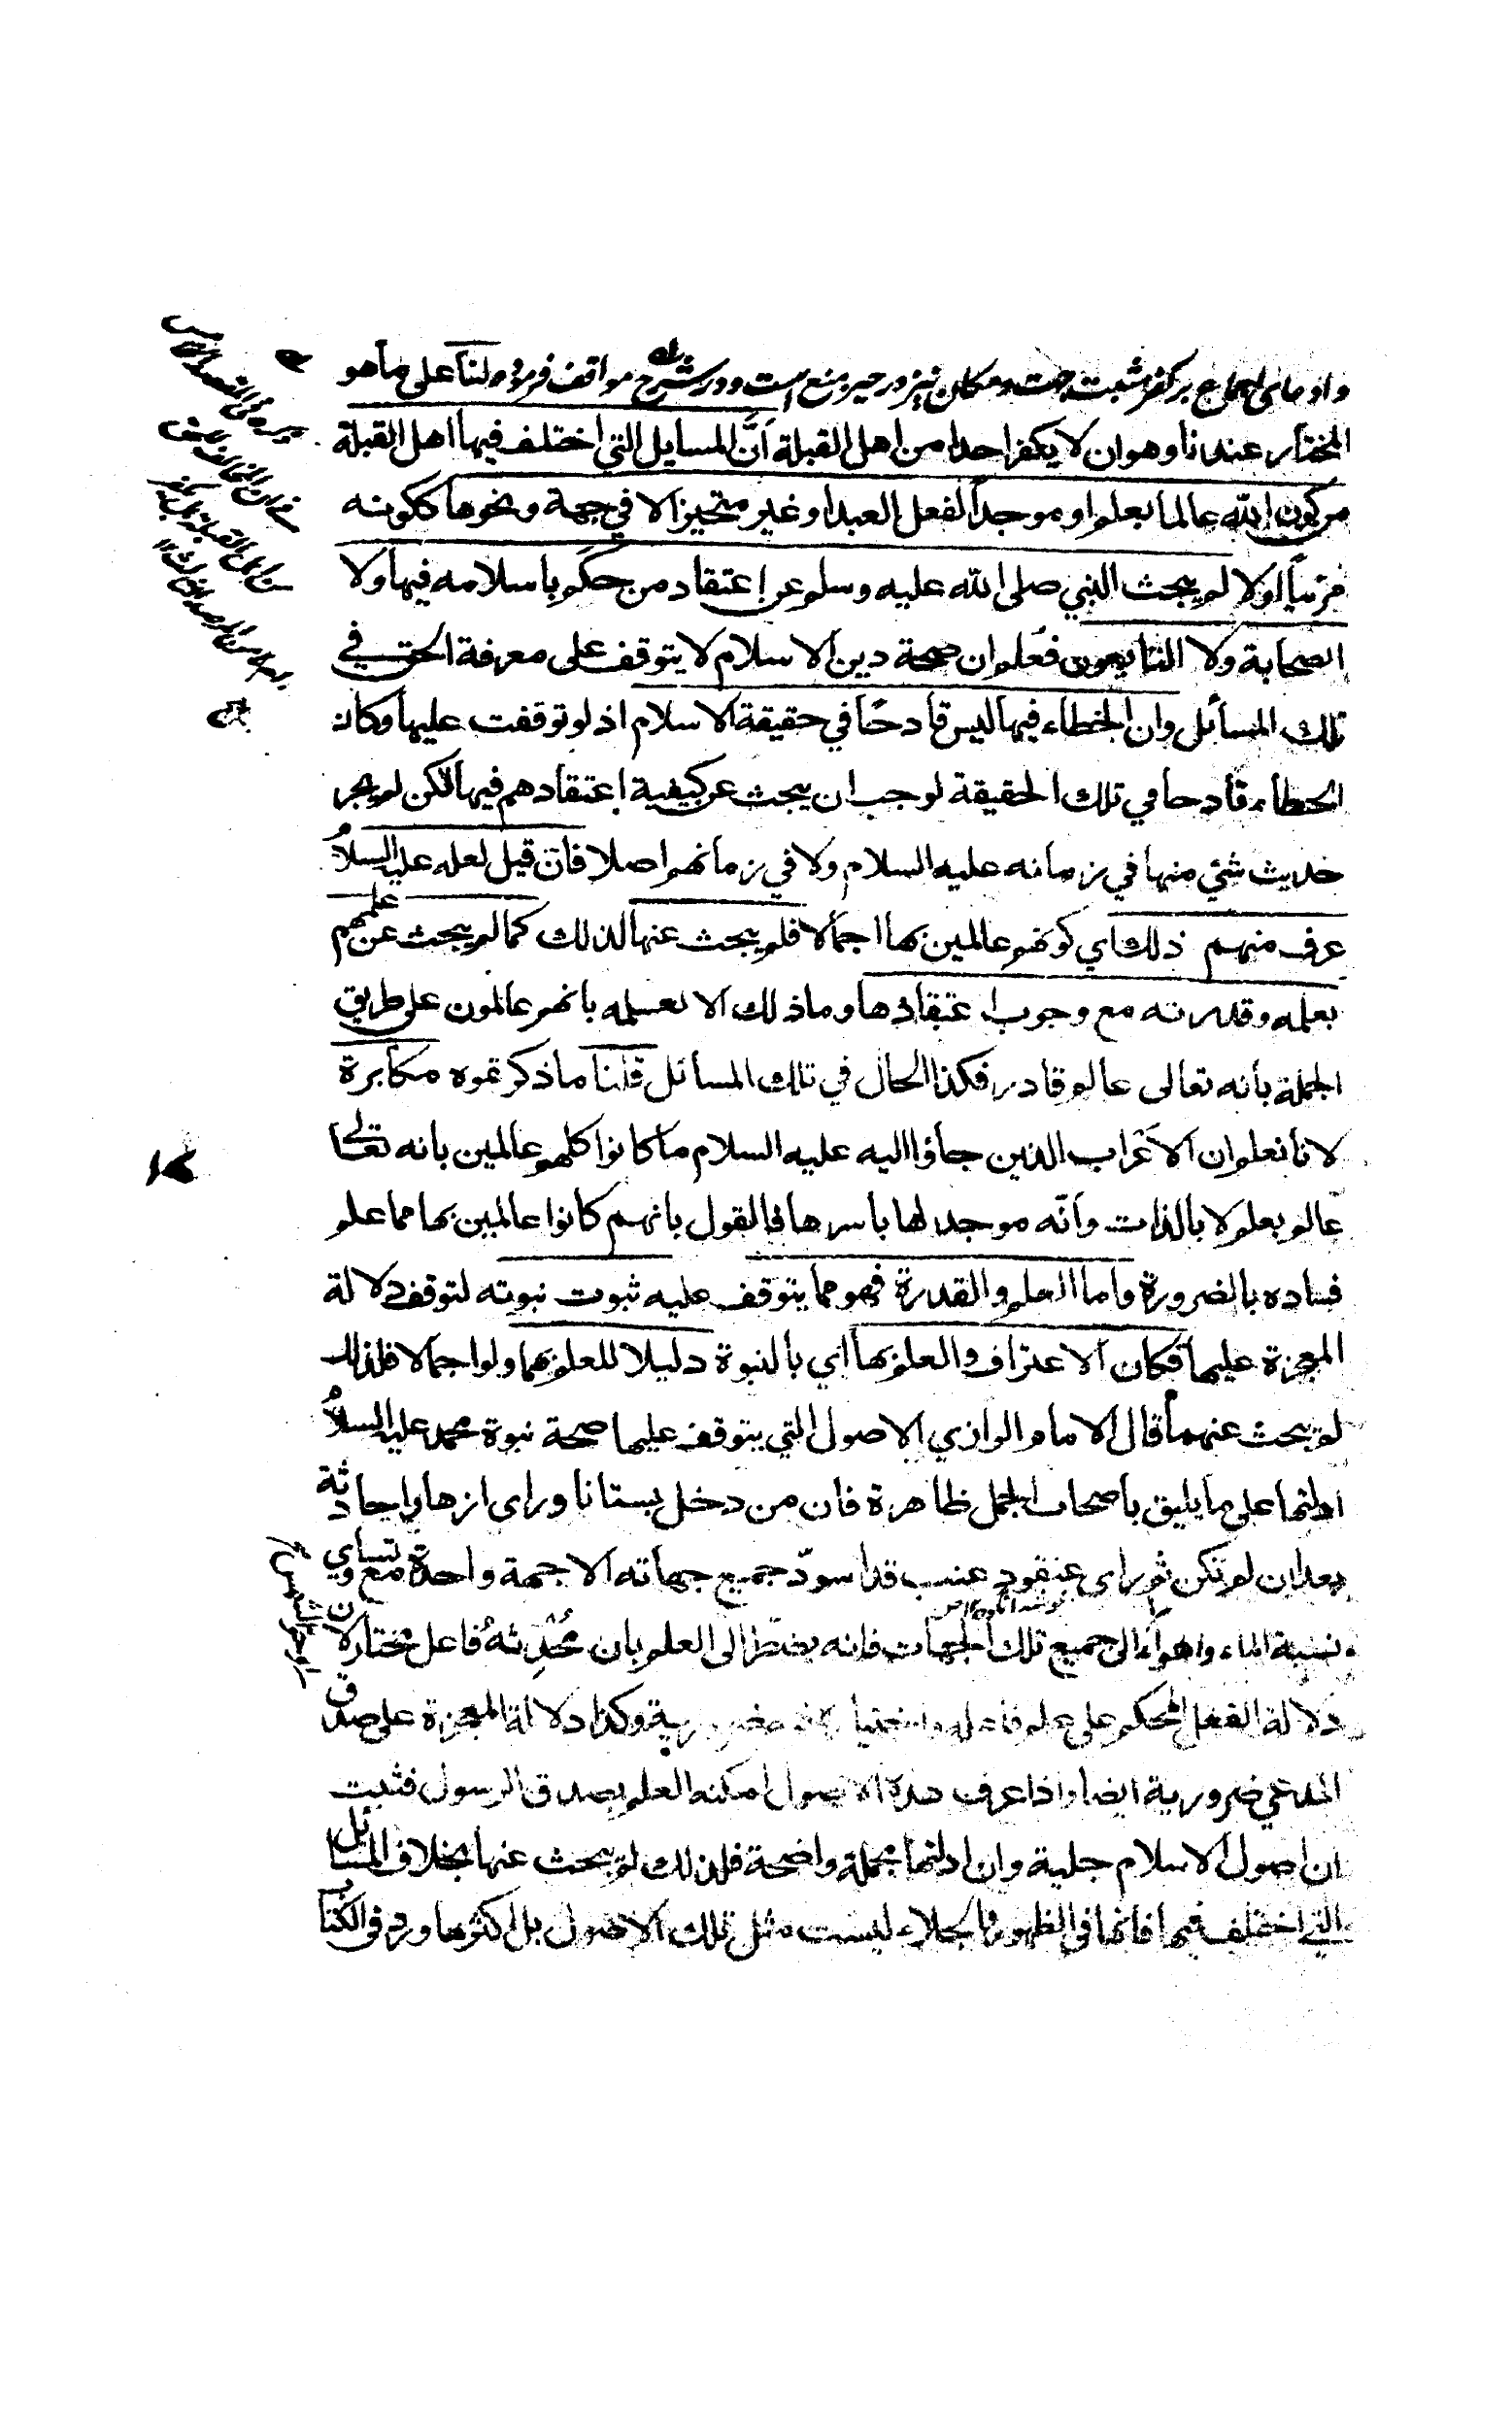 وادعای اجماع بر کفر مثبت جهت و مکان نیز در حیز منع است و در شرح مواقف فرموده لنا علی ما هو
المختار عندنا وهوان لا یکفر احدا من اهل القبلة انَّ المسایل التی اختلف فیها اهل القبلة
من کون الله عالما بعلم او موجداً لفعل العبد او غیر متحیز الا فی جهة ونحوها ککونه
مرئیاً اولا لم یبحث النبي صلی الله علیه وسلم عن إعتقاد من حکم باسلامه فیها ولا
الصحابة ولا التابعون فعلم ان صحة دین الاسلام لا یتوقف علی معرفة الحق في
تلك المسائل وان الخطاء فیها لیس قادحًا في حقیقة الاسلام اذ لو توقفت علیها وکان
الخطاء قادحا في تلك الحقیقة لوجب ان یبحث عن کیفیة اعتقادهم فیها لکن لم یجر
حدیث شئ منها في زمانه علیه السلام ولا في زمانهم اصلا فان قیل لعله علیه السلامُ
عرف منهم ذلك اي کونهم عالمین بها اجمالا فلم یبحث عنها لذلك کما لم یبحث عن علمهم
بعلمه وقدرته مع وجوب اعتقادها وما ذلك الا لعلمه بانهم عالمون علی طریق
الجملة بانه تعالی عالم قادر فکذا الحال في تلك المسائل قلنا ما ذکرتموه مکابرة
لانا نعلم ان الاعراب الذین جاؤا الیه علیه السلام ما کانوا کلهم عالمین بانه تعالی
عالم بعلم لا بالذات وانّه موجد لها باسرها فالقول بانهم کانوا عالمین بها مما علم
فساده بالضرورة واما العلم والقدرة فهو مما یتوقف علیه ثبوت نبوته لتوقف دلالة
المعجزة علیها فکان الاعتراف والعلم بها اي بالنبوة دلیلا للعلم بهما ولو اجمالا فلذلك
لم یبحث عنهما قال الامام الرازي الاصول التي یتوقف علیها صحة نبوة محمد علیه السلامُ
ادلتها علی ما یلیق باصحاب الجمل ظاهرة فان من دخل بستانا ورای ازهارا حادثة
بعد ان لم تکن ثم رای عنقود عنب قد اسودّ جمیع جهاته الا جهة واحدة مع تساوي
نسبة الماء والهواء الی جمیع تلك الجهات فانه یضطر الی العلم بان مُحْدِثهُ فاعل مختار لان
دلالة الفعل المحکم علی علم فاعله واختیاره ضروریة وکذا دلالة المعجزة علی صدق
المدعي ضروریة ایضا واذا عرف هذه الاصول امکنه العلم بصدق الرسول فثبت
ان اصول الاسلام جلیة وان ادلتها مجملة واضحة فلذلك لم یبحث عنها بخلاف المسائل
التي اختلف فیها فانها في الظهور والجلاء لیست مثل تلك الاصول بل اکثرها ورد في الکتاب